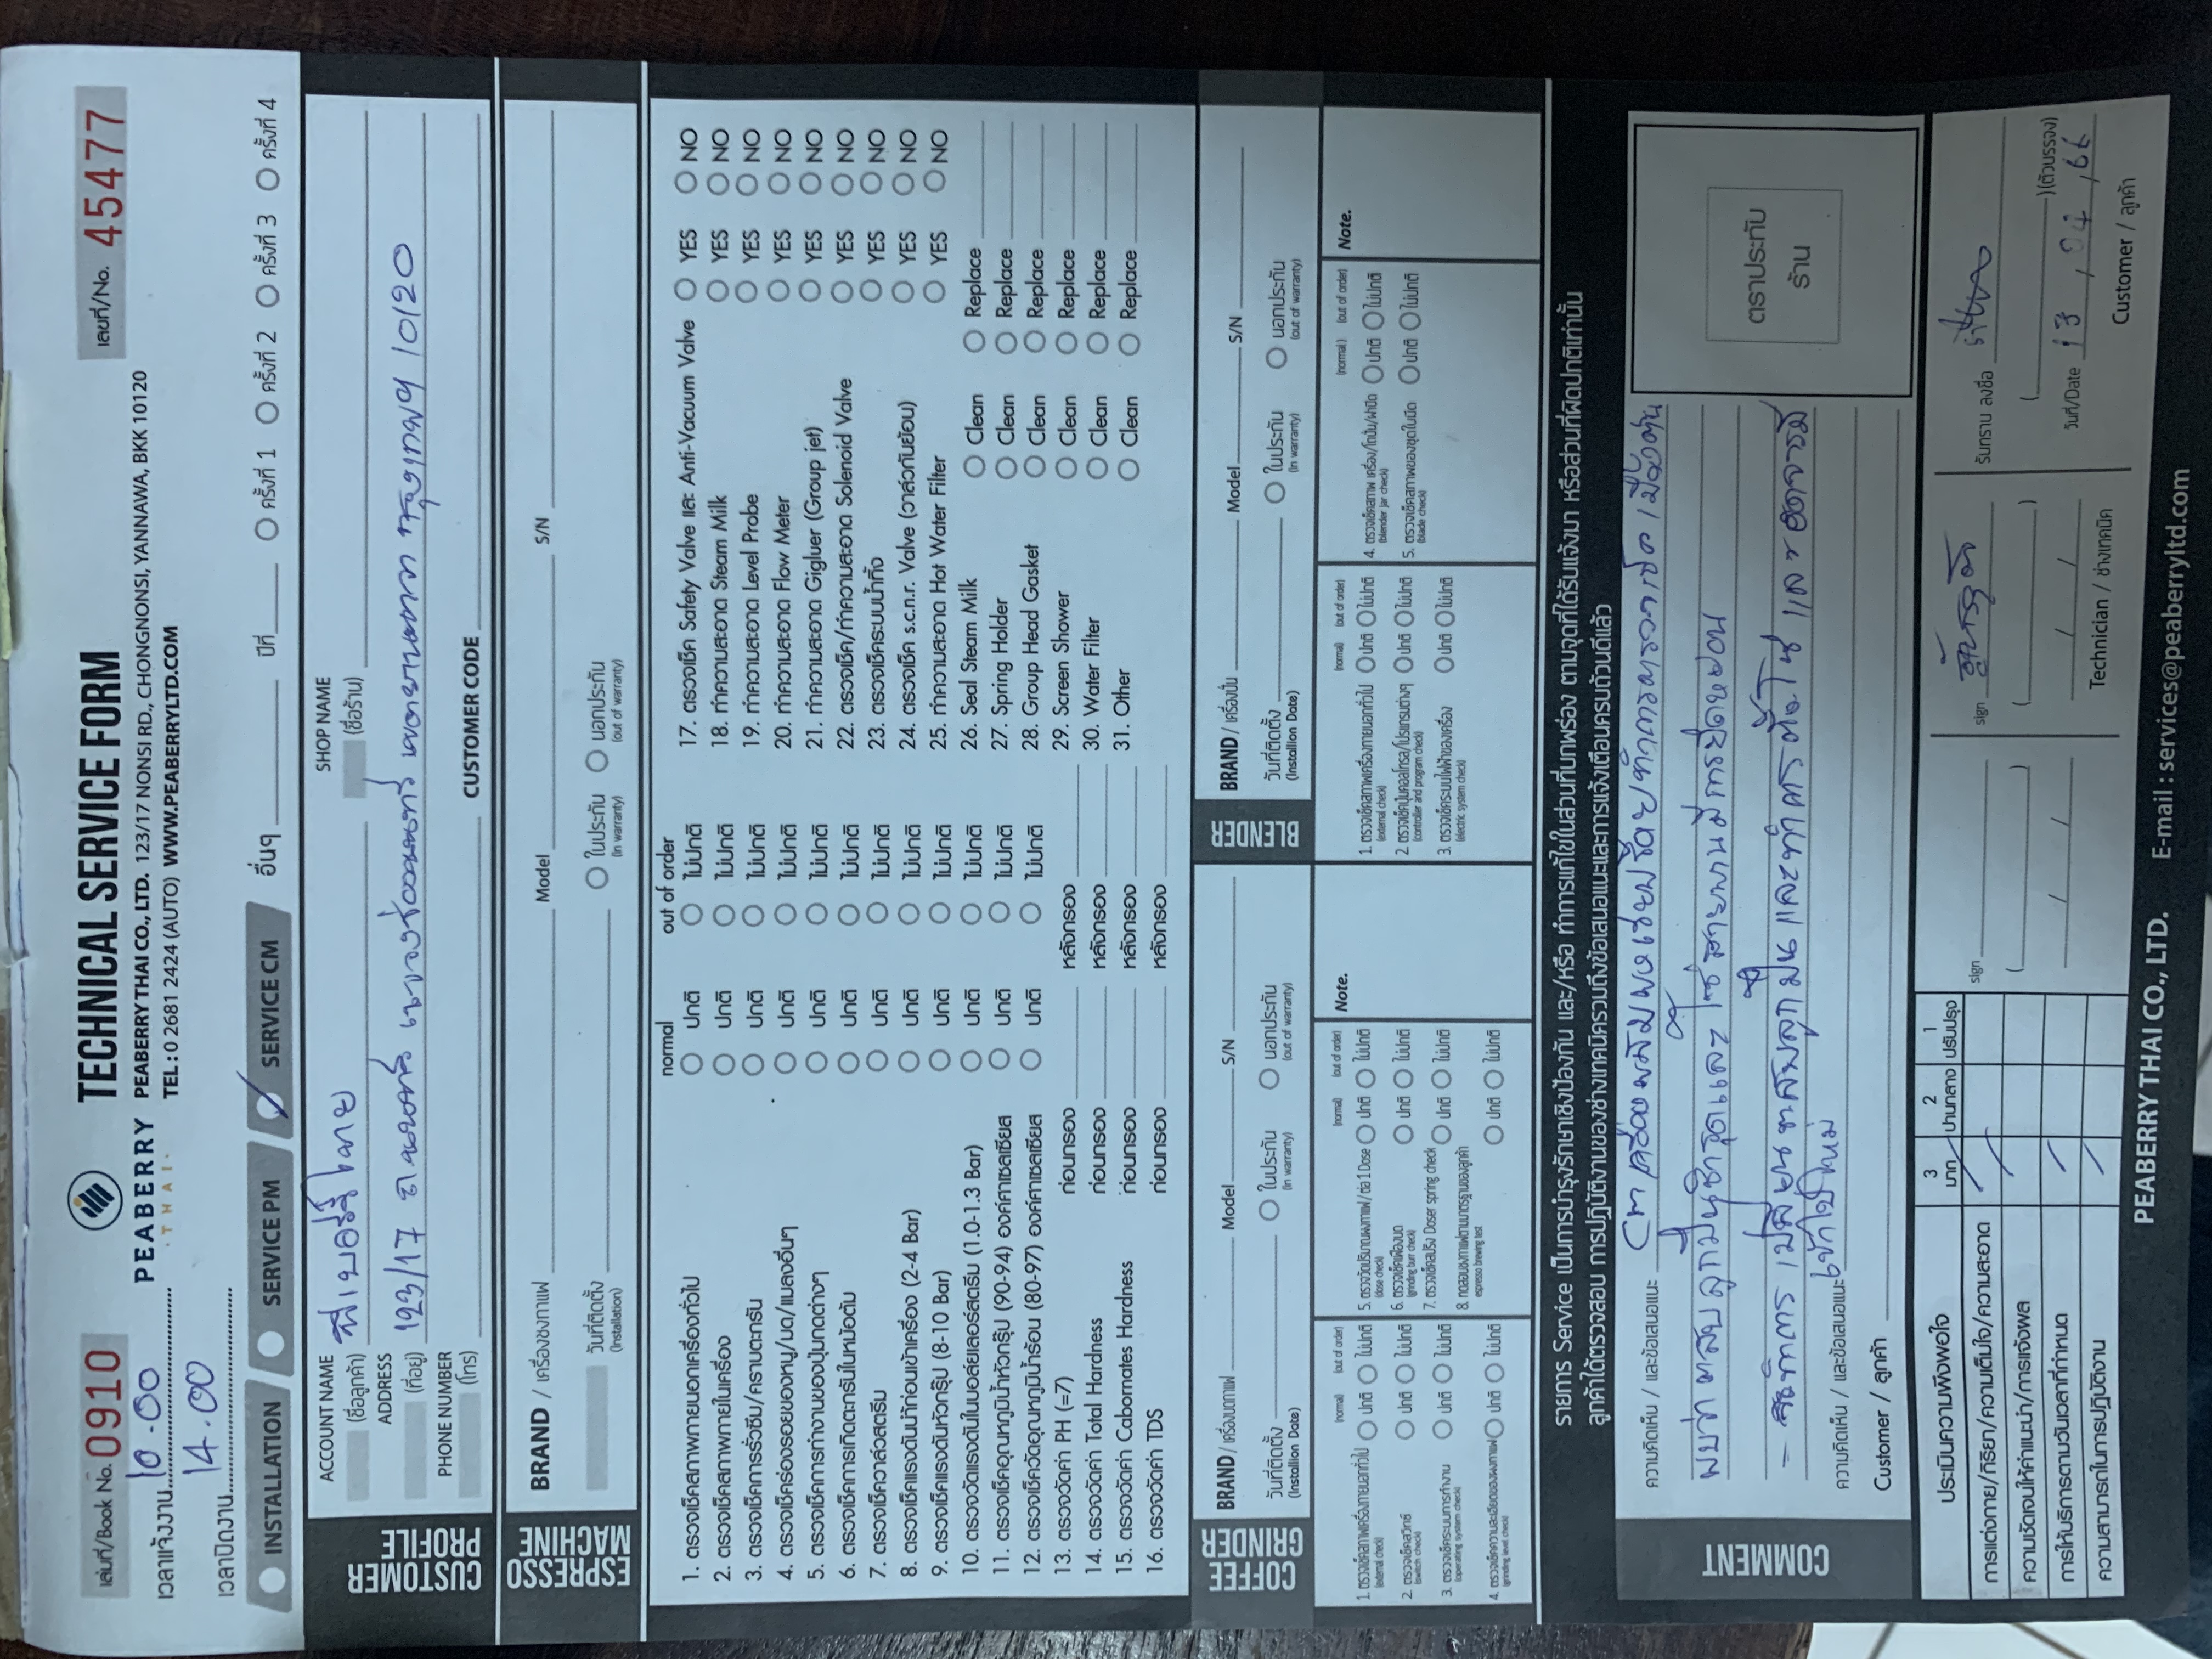 เล่มที่/Book No. 0910
PEABERRY
THAI
TECHNICAL SERVICE FORM
PEABERRY THAI CO., LTD. 123/17 NONSI RD., CHONGNONSI, YANNAWA, BKK 10120
TEL : 0 2681 2424 (AUTO) WWW.PEABERRYLTD.COM
เลขที่/No. 45477
เวลาแจ้งงาน 10.00
เวลาปิดงาน 14.00
INSTALLATION SERVICE PM SERVICE CM อื่นๆ ปีที่ ครั้งที่ 1 ครั้งที่ 2 ครั้งที่ 3 ครั้งที่ 4
CUSTOMER PROFILE
ACCOUNT NAME (ชื่อลูกค้า) พีเบอร์รี่ไทย SHOP NAME (ชื่อร้าน)
ADDRESS (ที่อยู่) 123/17 ถ.นนทรี แขวงช่องนนทรี เขตยานนาวา กรุงเทพฯ 10120
PHONE NUMBER (โทร) CUSTOMER CODE
ESPRESSO MACHINE
BRAND / เครื่องชงกาแฟ Model S/N
วันที่ติดตั้ง (Installation) ในประกัน (in warranty) นอกประกัน (out of warranty)
normal out of order
1. ตรวจเช็คสภาพภายนอกเครื่องทั่วไป ปกติ ไม่ปกติ
2. ตรวจเช็คสภาพภายในเครื่อง ปกติ ไม่ปกติ
3. ตรวจเช็คการรั่วซึม/คราบตะกรัน ปกติ ไม่ปกติ
4. ตรวจเช็คร่องรอยของหนู/มด/แมลงอื่นๆ ปกติ ไม่ปกติ
5. ตรวจเช็คการทำงานของปุ่มกดต่างๆ ปกติ ไม่ปกติ
6. ตรวจเช็คการเกิดตะกรันในหม้อต้ม ปกติ ไม่ปกติ
7. ตรวจเช็ควาล์วสตรีม ปกติ ไม่ปกติ
8. ตรวจเช็คแรงดันน้ำก่อนเข้าเครื่อง (2-4 Bar) ปกติ ไม่ปกติ
9. ตรวจเช็คแรงดันหัวกรุ๊ป (8-10 Bar) ปกติ ไม่ปกติ
10. ตรวจวัดแรงดันในบอล์ยเลอร์สตรีม (1.0-1.3 Bar) ปกติ ไม่ปกติ
11. ตรวจเช็คอุณหภูมิน้ำหัวกรุ๊ป (90-94) องค์ศาเซลเซียส ปกติ ไม่ปกติ
12. ตรวจเช็ควัดอุณหภูมิน้ำร้อน (80-97) องค์ศาเซลเซียส ปกติ ไม่ปกติ
13. ตรวจวัดค่า PH (=7) ก่อนกรอง หลังกรอง
14. ตรวจวัดค่า Total Hardness ก่อนกรอง หลังกรอง
15. ตรวจวัดค่า Cabornates Hardness ก่อนกรอง หลังกรอง
16. ตรวจวัดค่า TDS ก่อนกรอง หลังกรอง
17. ตรวจเช็ค Safety Valve และ Anti-Vacuum Valve YES NO
18. ทำความสะอาด Steam Milk YES NO
19. ทำความสะอาด Level Probe YES NO
20. ทำความสะอาด Flow Meter YES NO
21. ทำความสะอาด Gigluer (Group jet) YES NO
22. ตรวจเช็ค/ทำความสะอาด Solenoid Valve YES NO
23. ตรวจเช็คระบบน้ำทิ้ง YES NO
24. ตรวจเช็ค s.c.n.r. Valve (วาล์วกันย้อน) YES NO
25. ทำความสะอาด Hot Water Filter YES NO
26. Seal Steam Milk Clean Replace
27. Spring Holder Clean Replace
28. Group Head Gasket Clean Replace
29. Screen Shower Clean Replace
30. Water Filter Clean Replace
31. Other Clean Replace
COFFEE GRINDER
BRAND / เครื่องบดกาแฟ Model S/N
วันที่ติดตั้ง (Installion Date) ในประกัน (in warranty) นอกประกัน (out of warranty)
BLENDER
BRAND / เครื่องปั่น Model S/N
วันที่ติดตั้ง (Installion Date) ในประกัน (in warranty) นอกประกัน (out of warranty)
(normal) (out of order)
1. ตรวจเช็คสภาพเครื่องภายนอกทั่วไป (external check) ปกติ ไม่ปกติ
2. ตรวจเช็คสวิทซ์ (switch check) ปกติ ไม่ปกติ
3. ตรวจเช็คระบบการทำงาน (operating system check) ปกติ ไม่ปกติ
4. ตรวจเช็คความละเอียดของผงกาแฟ (grinding level check) ปกติ ไม่ปกติ
(normal) (out of order)
5. ตรวจวัดปริมาณผงกาแฟ/ต่อ 1 Dose (dose check) ปกติ ไม่ปกติ
6. ตรวจเช็คเฟืองบด (grinding burr check) ปกติ ไม่ปกติ
7. ตรวจเช็คสปริง Doser spring check ปกติ ไม่ปกติ
8. ทดสอบชงกาแฟตามมาตรฐานของลูกค้า espresso brewing test ปกติ ไม่ปกติ
Note.
(normal) (out of order)
1. ตรวจเช็คสภาพเครื่องภายนอกทั่วไป (external check) ปกติ ไม่ปกติ
2. ตรวจเช็คปุ่มคอลโทรล/โปรแกรมต่างๆ (controller and program check) ปกติ ไม่ปกติ
3. ตรวจเช็คระบบไฟฟ้าของเครื่อง (electric system check) ปกติ ไม่ปกติ
(normal ) (out of order)
4. ตรวจเช็คสภาพ เครื่อง/โถปั่น/ฝาปิด (blender jar check) ปกติ ไม่ปกติ
5. ตรวจเช็คสภาพของชุดใบมีด (blade check) ปกติ ไม่ปกติ
Note.
รายการ Service เป็นการบำรุงรักษาเชิงป้องกัน และ/หรือ ทำการแก้ไขในส่วนที่บกพร่อง ตามจุดที่ได้รับแจ้งมา หรือส่วนที่ผิดปกติเท่านั้น
ลูกค้าได้ตรวจสอบ การปฏิบัติงานของช่างเทคนิครวมถึงข้อเสนอแนะและการแจ้งเตือนครบถ้วนดีแล้ว
COMMENT
ความคิดเห็น / และข้อเสนอแนะ CM เครื่องผสมผง โดยทำการตรวจเช็คเบื้องต้น
พบว่า ตลับลูกปืนชำรุดและ โซ่สายพานมีการยืดหย่อน
- ทำการ เปลี่ยนตลับลูกปืน และทำการตั้งโซ่ และ อัดจารบี
เข้าไปใหม่
ความคิดเห็น / และข้อเสนอแนะ
Customer / ลูกค้า
ตราประทับ
ร้าน
ประเมินความพึงพอใจ 3 มาก 2 ปานกลาง 1 ปรับปรุง
การแต่งกาย/กิริยา/ความเต็มใจ/ความสะอาด
ความชัดเจนให้คำแนะนำ/การแจ้งผล
การให้บริการตามวันเวลาที่กำหนด
ความสามารถในการปฏิบัติงาน
sign
sign
Technician / ช่างเทคนิค
รับทราบ ลงชื่อ
(ตัวบรรจง)
วันที่/Date 13 , 04 , 66
Customer / ลูกค้า
PEABERRY THAI CO., LTD. E-mail : services@peaberryltd.com